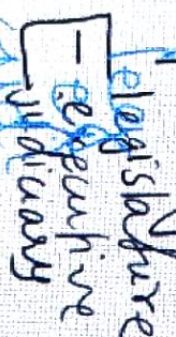 legislature
executive
judiciary